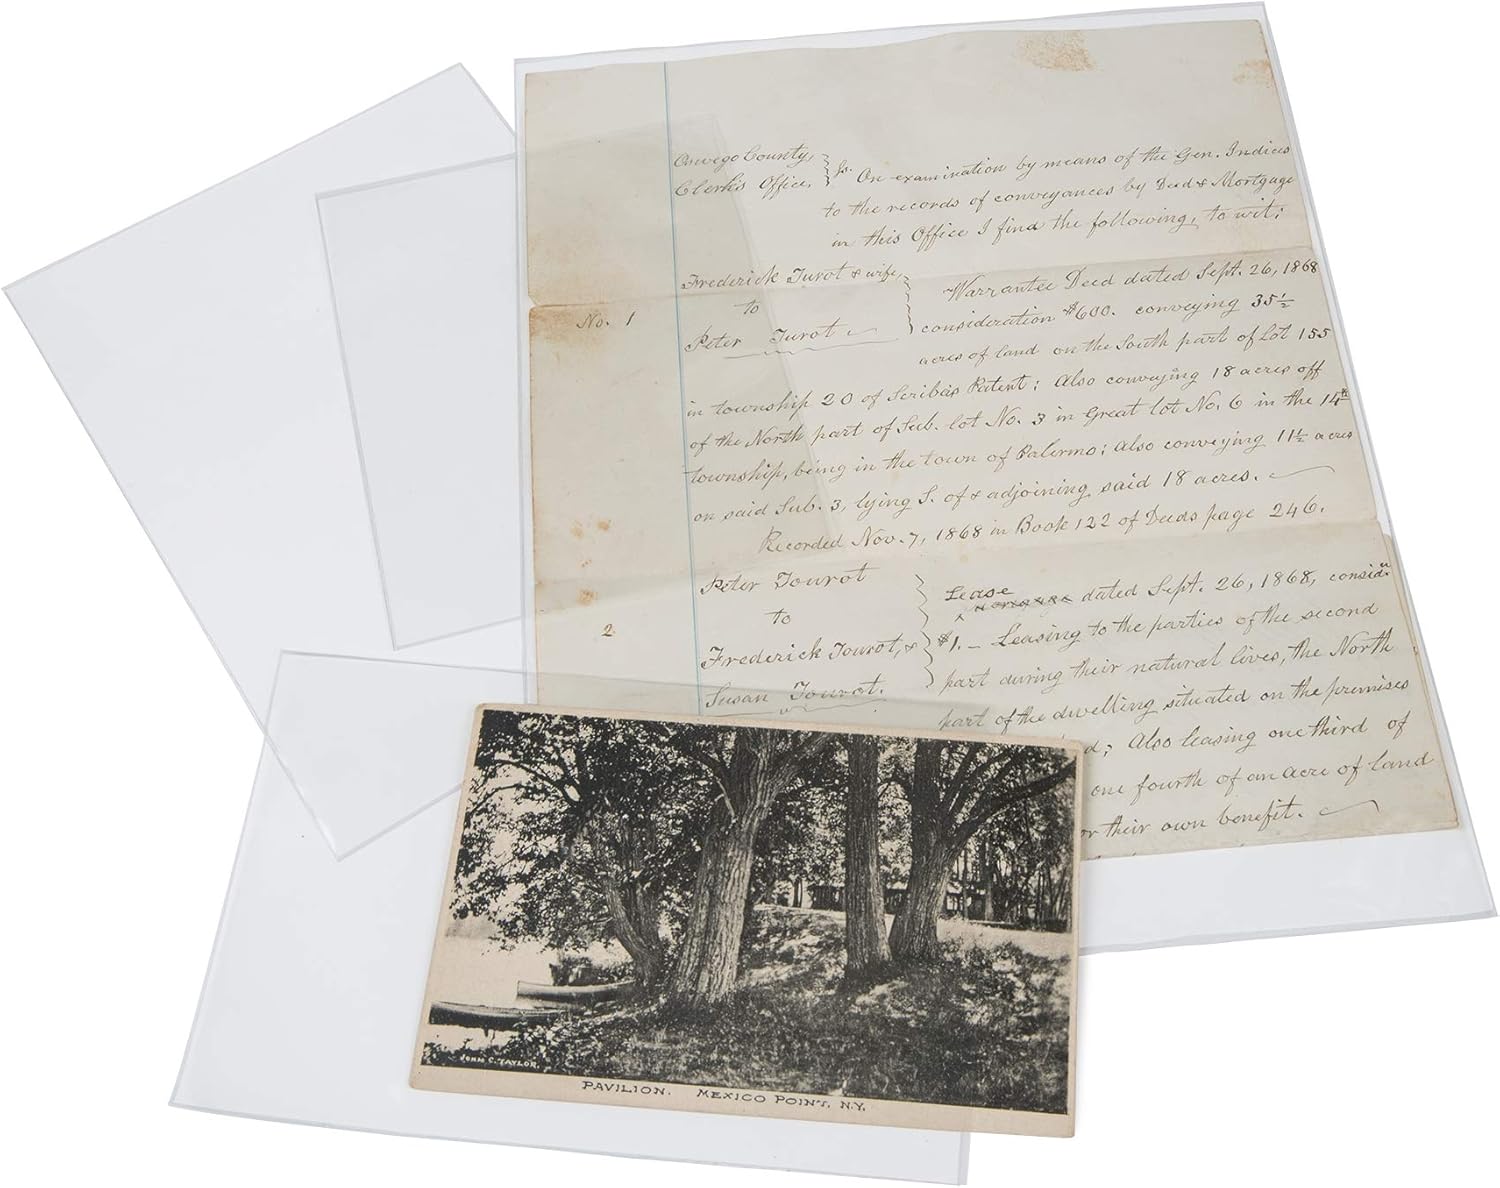 Oswego County,
Clerk's Office,
Ss. On examination by means of the Gen. Indices
to the records of conveyances by Deed & Mortgage
in this Office I find the following, to wit;
No. 1
Frederick Turot & wife,
to
Peter Turot
Warrantee Deed dated Sept. 26, 1868
consideration $600. conveying 35½
acres of land on the South part of Lot 155
in township 20 of Scriba's Patent; Also conveying 18 acres off
of the North part of Sub. lot No. 3 in Great lot No. 6 in the 14th
township, being in the town of Palermo; Also conveying 11½ acres
on said Sub. 3, lying S. of & adjoining said 18 acres.
Recorded Nov. 7, 1868 in Book 122 of Deeds page 246.
2
Peter Tourot
to
Frederick Tourot, &
Susan Tourot.
Lease
dated Sept. 26, 1868, considn
$1. – Leasing to the parties of the second
part during their natural lives, the North
part of the dwelling situated on the premises
d; Also leasing one third of
one fourth of an acre of land
or their own benefit.
JOHN C. TAYLOR.
PAVILION. MEXICO POINT, N.Y.